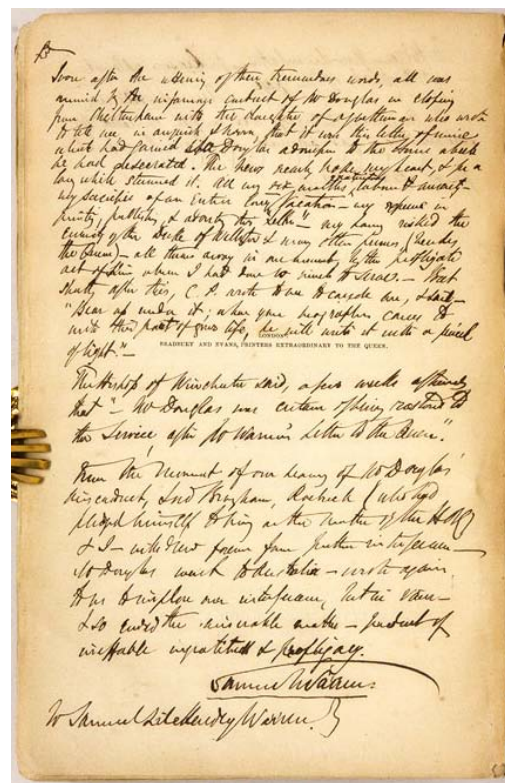 Soon after the uttering of these tremendous words, all was
ruined by the infamous conduct of Mr Douglas in eloping
from Cheltenham with the daughter of a gentleman who wrote
to tell me, in anguish & horror, that it was this letter of mine
which had gained Mr Douglas admission to the house which
he had desecrated. The news nearly broke my heart, & for a
long while stunned it. All my six months' gratuitous labour &
my sacrifice of an Entire Long Vacation – my expense in
printing, publishing & advertising this "Letter" – my having risked the
enmity of the Duke of Wellington & many other persons (besides
the Queen) – all thrown away in one moment, by the profligate
act of him whom I had done so much to serve. –
shortly after this, C. P. wrote to me to console me, & said –
"Bear up under it; when your biographer comes to
write this part of your life, he will write it with a pencil
of light." –
LONDON:
BRADBURY AND EVANS, PRINTERS EXTRAORDINARY TO THE QUEEN.
The Bishop of Winchester said, a few weeks afterwards
that "– Mr Douglas was certain of being restored to
the Service, after Mr Warren's Letter to the Queen".
From the moment of our hearing of Mr Douglas'
misconduct, Lord Brougham, Roebuck (who had
pledged himself to bring on the matter of the H of C)
& I – withdrew forever from further interference –
Mr Douglas went to Australia – wrote again
to us to implore our interference, but in vain –
& so ended the miserable matter – product of
ineffable ingratitude & profligacy.
Samuel Warren.
To Samuel Lilckendey Warren.